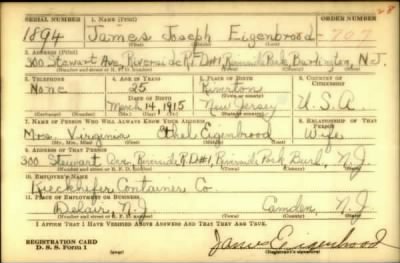 SERIAL NUMBER 1. NAME (Print) ORDER NUMBER (Print)
1894 James Joseph Eigenbrood 707
(First) (Middle) (Last)
2. ADDRESS (Print)
300 Stewart Ave, Riverside R.D.#1 Riverside Park, Burlington, N.J.
(Number and street or R. F. D. number) (Town) (County) (State)
3. TELEPHONE 4. AGE IN YEARS 5. PLACE OF BIRTH 6. COUNTRY OF
CITIZENSHIP
None 25 Riverton
DATE OF BIRTH (Town or county)
March 14, 1915 New Jersey U.S.A.
(Mo.) (Day) (Yr.) (State or country)
7. NAME OF PERSON WHO WILL ALWAYS KNOW YOUR ADDRESS 8. RELATIONSHIP OF THAT PERSON
Mrs. Virginia Ethel Eigenbrood Wife
(Mr., Mrs., Miss) (First) (Middle) (Last)
9. ADDRESS OF THAT PERSON
300 Stewart Ave, Riverside R.D.#1, Riverside Park Burl., N.J.
(Number and street or R. F. D. number) (Town) (County) (State)
10. EMPLOYER'S NAME
Rieckhefer Container Co.
11. PLACE OF EMPLOYMENT OR BUSINESS
Delair, N.J. Camden, N.J.
(Number and street or R. F. D. number) (Town) (County) (State)
I AFFIRM THAT I HAVE VERIFIED ABOVE ANSWERS AND THAT THEY ARE TRUE.
REGISTRATION CARD
D. S. S. Form 1
James Eigenbrood
(Registrant's signature)